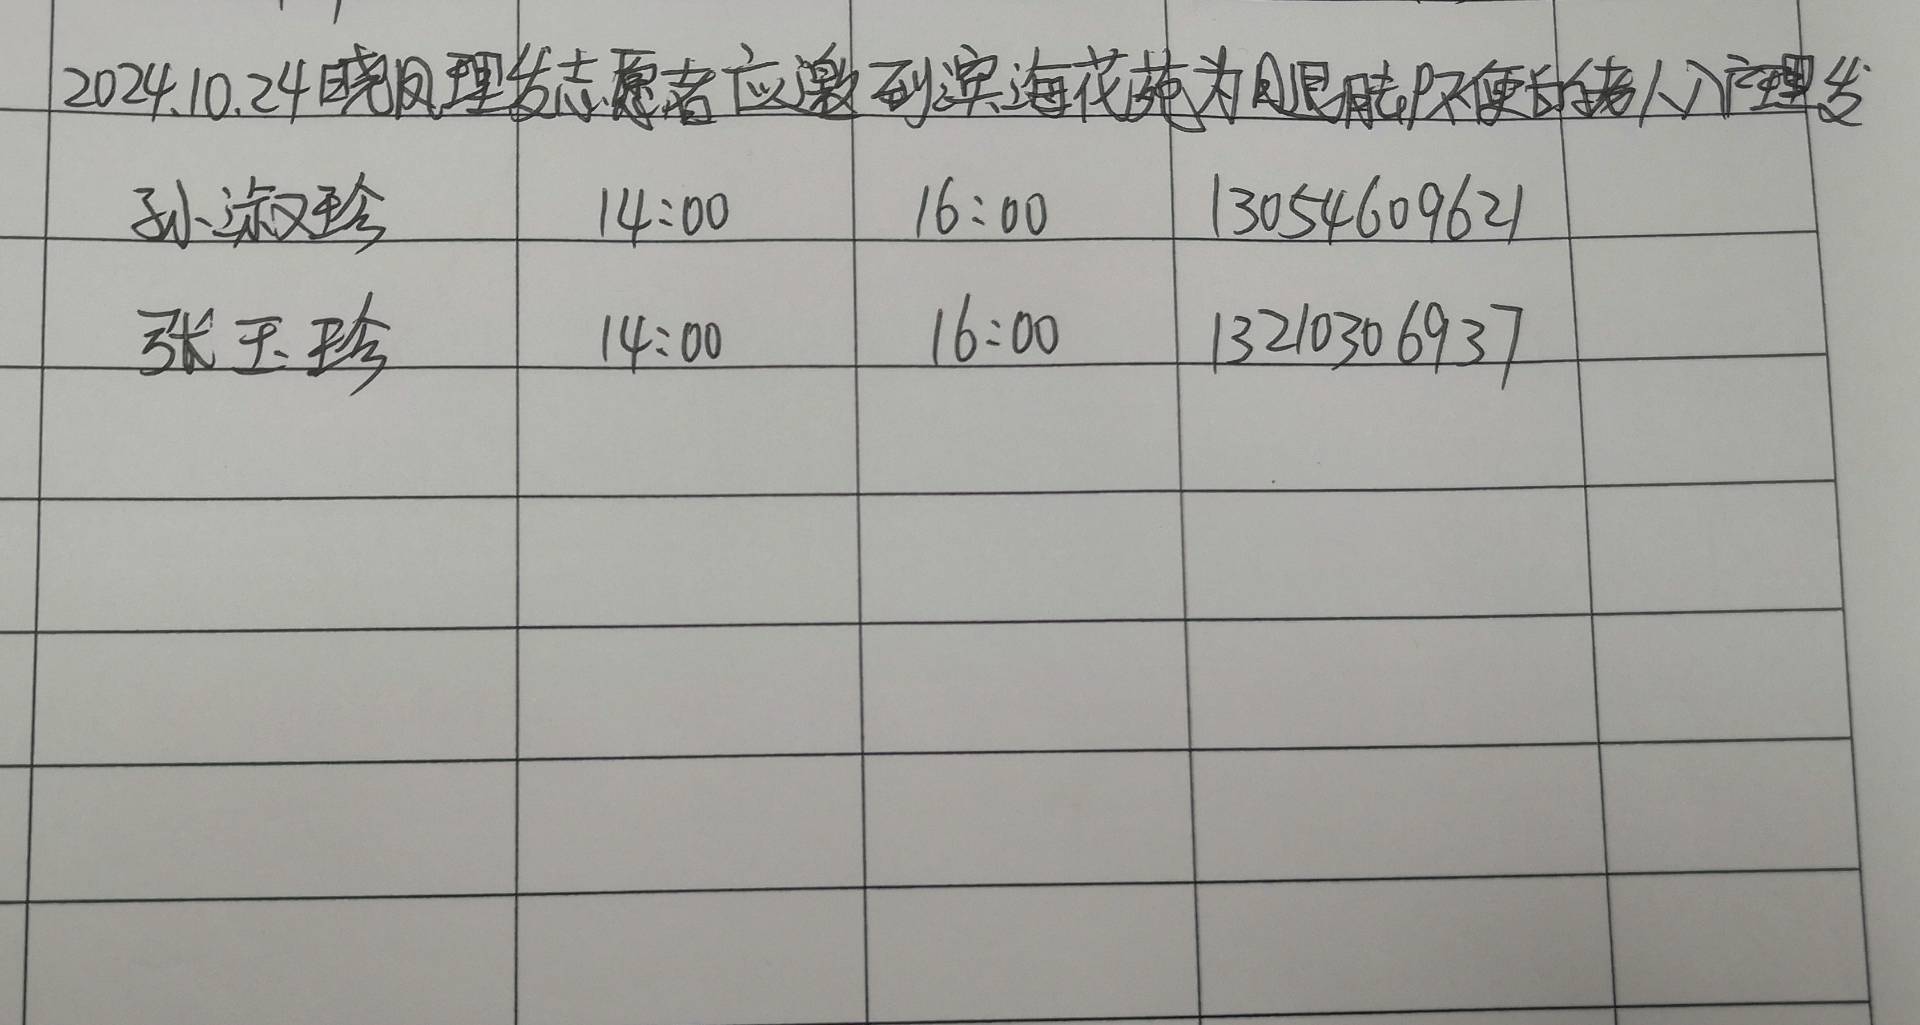 2024.10.24日晓风理发志愿者应邀到滨海花苑为因眼睛不便的老人入户理发
孙淑珍 14:00 16:00 13054609621
张玉珍 14:00 16:00 13210306937